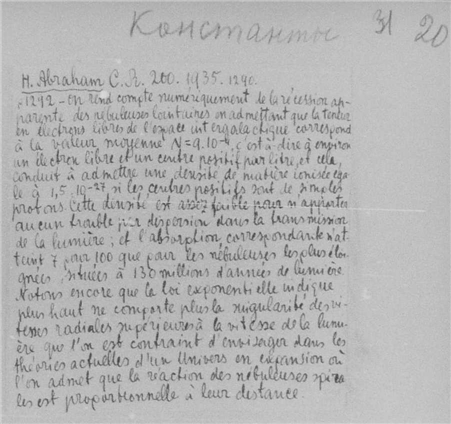 Константы 31 20
H. Abraham C. R. 200. 1935. 1290.
c 1292 – On rend compte numériquement de la récession ap-
parente des nébuleuses lointaines en admettant que la teneur
en électrons libres de l'espace intergalactique correspond
à la valeur moyenne N=9.10⁻⁴, c'est à dire à environ
un électron libre et un centre positif par litre, et cela,
conduit à admettre une densité de matière ionisée éga-
le à 1,5.10⁻²⁷, si les centres positifs sont de simples
protons. Cette densité est assez faible pour n'apporter
aucun trouble par dispersion dans la transmission
de la lumière; et l'absorption correspondante n'at-
teint 7 pour 100 que pour les nébuleuses les plus éloi-
gnées, situées à 130 millions d'années de lumière.
Notons encore que la loi exponentielle indiqué
plus haut ne comporte plus la singularité des vi-
tesses radiales supérieures à la vitesse de la lumi-
ère que l'on est contraint d'envisager dans les
théories actuelles d'un Univers en expansion où
l'on admet que la réaction des nébuleuses spira
les est proportionnelle à leur distance.